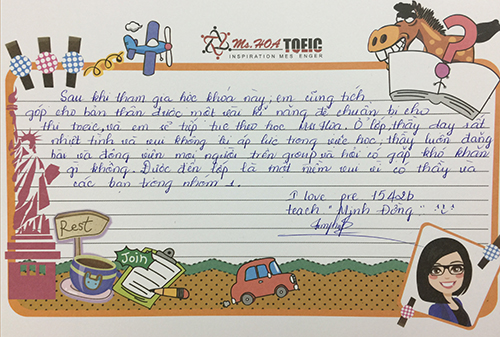 Ms. HOA TOEIC
INSPIRATION MESSENGER
Sau khi tham gia học khóa này, em cũng tích
góp cho bản thân được một vài kĩ năng để chuẩn bị cho
thi toeic, và em sẽ tiếp tục theo học Hoa. Ở lớp, thầy dạy rất
nhiệt tình và vui không bị áp lực trong việc học, thầy luôn đăng
bài và động viên mọi người trên group và hỏi có gặp khó khăn
gì không. Được đến lớp là một niềm vui vì có thầy và
các bạn trong nhóm 1.
I love pre 1542b
teach "Minh Đông"
Rest
Join